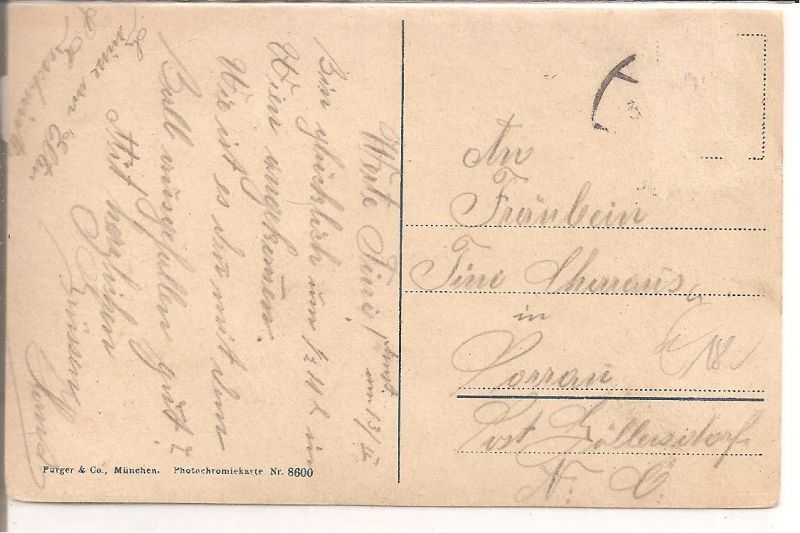 Werte Tini!
am 13/
Bin glücklich um ½ 11 h in
Wien angekommen.
Wie ist es den mit dem
Ball ausgefallen gut?
Mit herzlichen
Grüssen
An
Fräulein
Tini
in
Post Göllersdorf
N. Ö.
18
Purger & Co., München. Photochromiekarte Nr. 8600